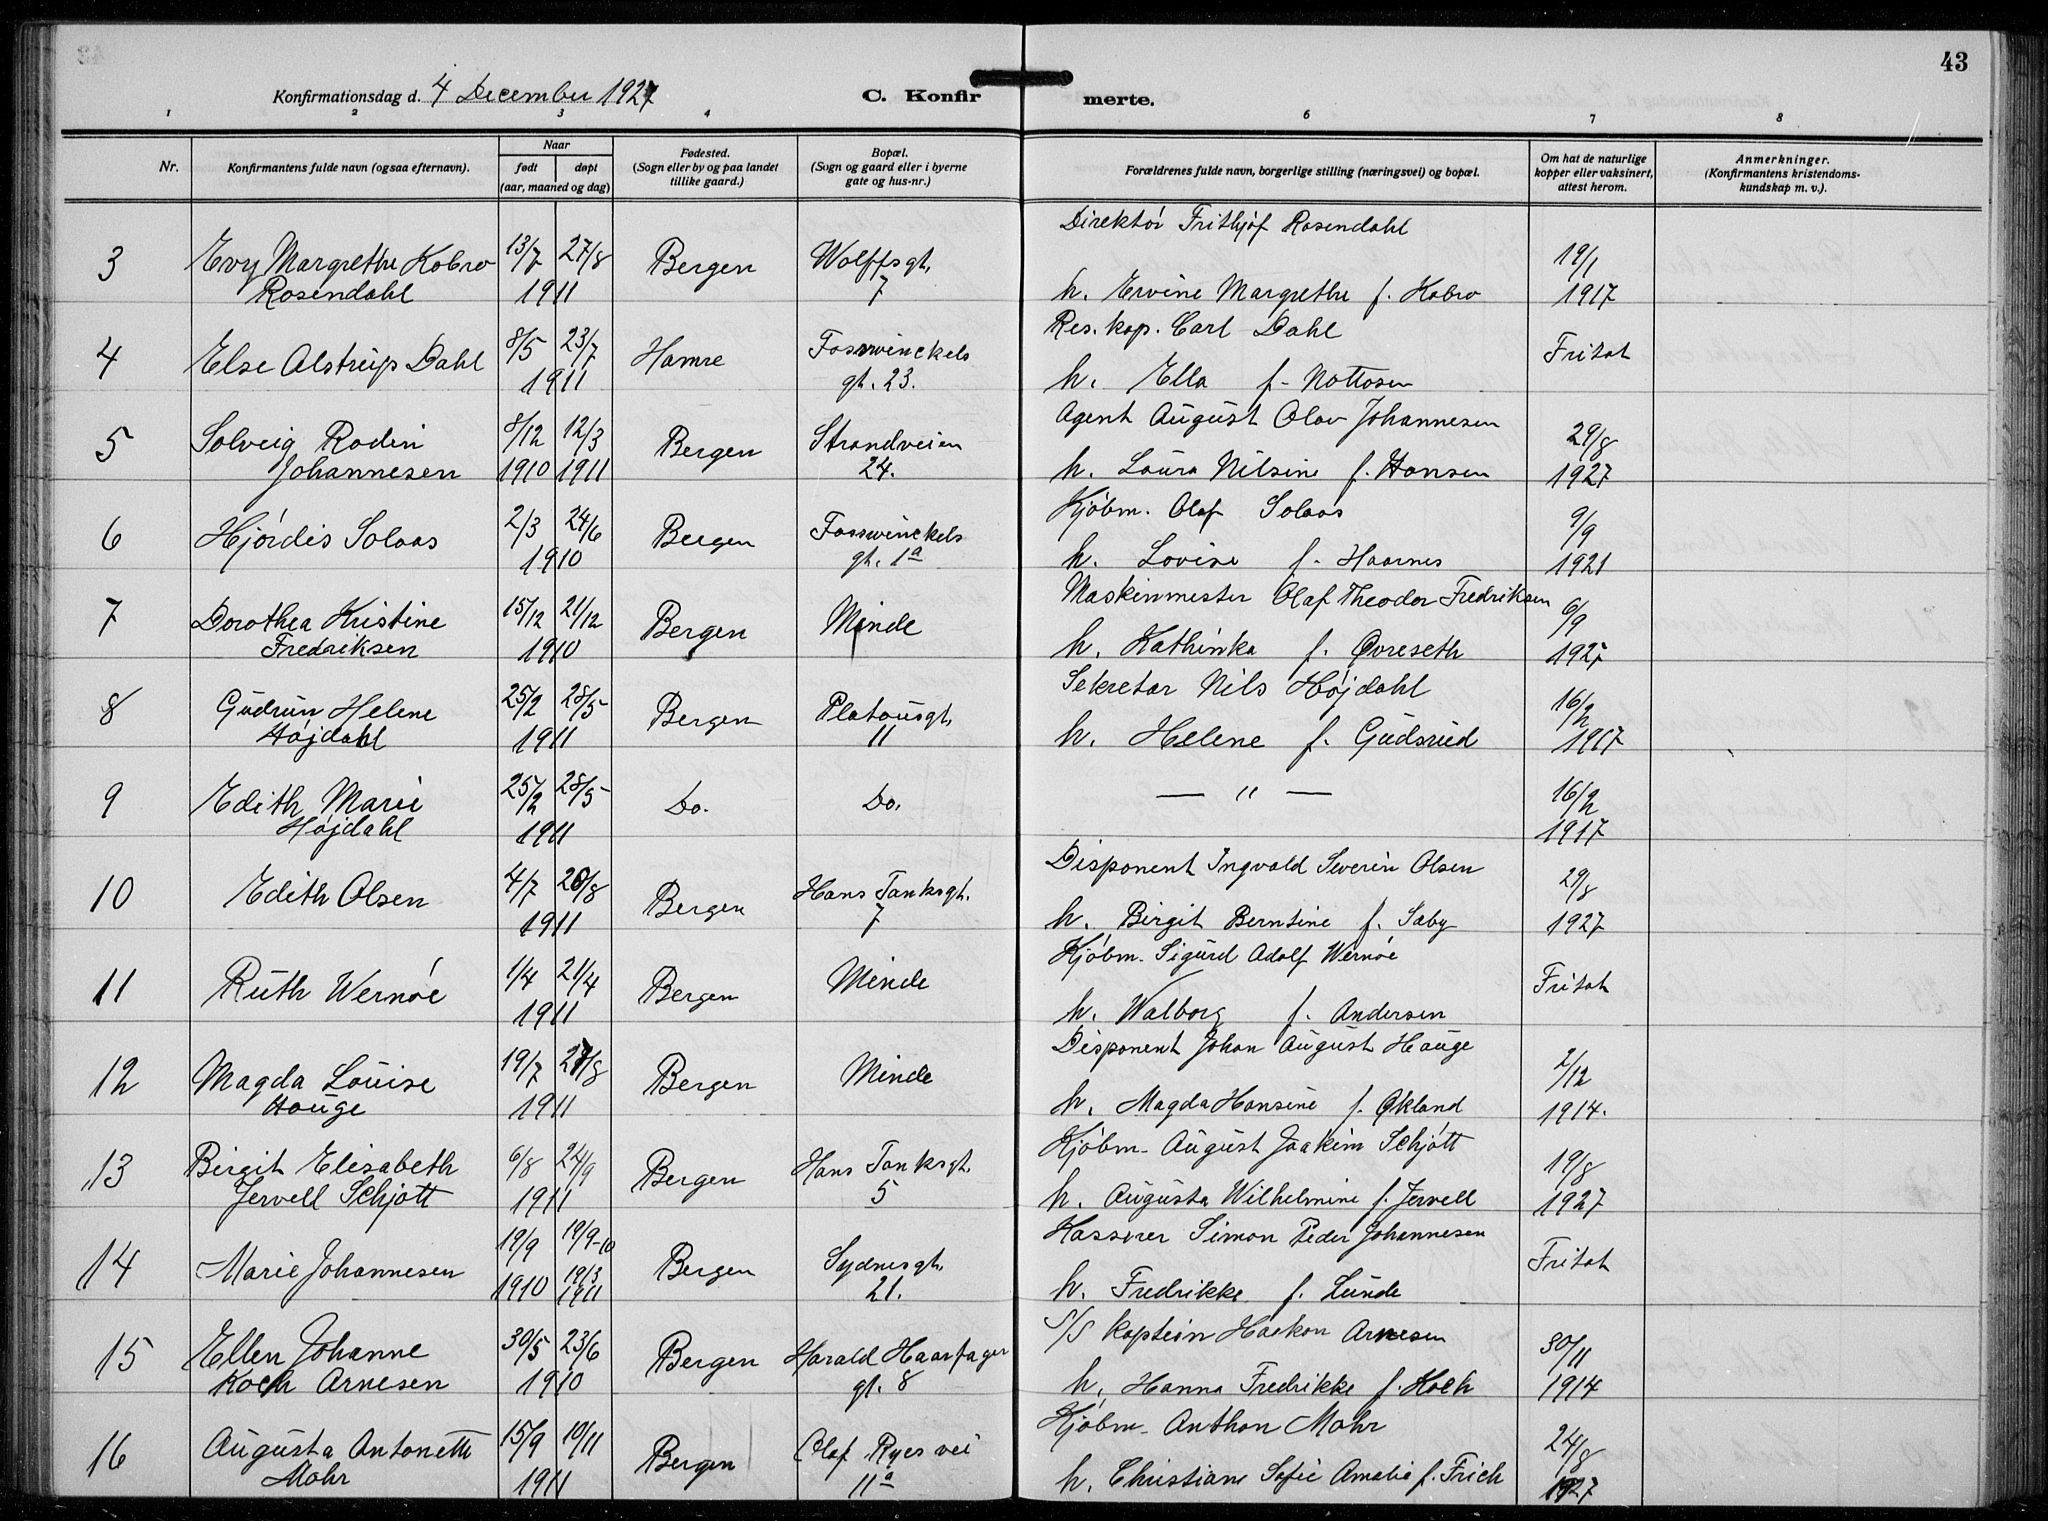 43
Konfirmationsdag d. 4 December 1927 C. Konfirmerte.
1 2 3 4 5 6 7 8
Nr. Konfirmantens fulde navn (ogsaa efternavn). Naar født døpt (aar, maaned og dag) Fødested. (Sogn eller by og paa landet tillike gaard.) Bopæl. (Sogn og gaard eller i byerne gate og hus-nr.) Forældrenes fulde navn, borgerlige stilling (næringsvei) og bopæl. Om hat de naturlige kopper eller vaksinert, attest herom. Anmerkninger. (Konfirmantens kristendomskundskap m. v.).
Direktör Frithjof Rosendahl
3 Evy Margrethe Kobro 13/7 27/8 Bergen Wolffsgt. 19/1
Rosendahl 1911 7 h. Ervine Margrethe f. Kobro 1917
Res. kap. Carl Dahl
4 Else Alstrup Dahl 8/5 23/7 Hamre Fosswinckels Fritat
1911 gt. 23. h. Ella f. Nottosen
Agent August Olav Johannesen
5 Solveig Rodin 8/12 12/3 Bergen Strandveien 29/8
Johannesen 1910 1911 24. h. Laura Nilsine f. Hansen 1927
Kjöbm. Olaf Solaas
6 Hjördis Solaas 2/3 24/6 Bergen Fosswinckels 9/9
1910 gt. 1a h. Lovise f. Haarnes 1921
Maskinmester Olaf Theodor Fredriksen
7 Dorothea Kristine 15/12 21/12 Bergen Minde 6/9
Fredriksen 1910 h. Kathinka f. Øvreseth 1927
Sekretær Nils Højdahl
8 Gudrun Helene 25/2 28/5 Bergen Platousgt. 16/2
Højdahl 1911 11 h. Helene f. Gudsrud 1917
9 Edith Marie 25/2 28/5 Do. Do. — " — 16/2
Højdahl 1911 1917
Disponent Ingvald Severin Olsen
10 Edith Olsen 4/7 20/8 Bergen Hans Tanksgt. 29/8
1911 7 h. Birgit Berntine f. Sæby 1927
Kjöbm. Sigurd Adolf Wernöe
11 Ruth Wernöe 1/4 21/4 Bergen Minde Fritat
1911 h. Walborg f. Andersen
Disponent Johan August Hauge
12 Magda Louise 19/7 27/8 Bergen Minde 2/12
Hauge 1911 h. Magda Hansine f. Økland 1914.
Kjöbm. August Joakim Schjött
13 Birgit Elisabeth 6/8 24/9 Bergen Hans Tanksgt. 19/8
Jervell Schjött 1911 5 h. Augusta Wilhelmine f. Jervell 1927
Kasserer Simon Peder Johannesen
14 Marie Johannesen 19/9 19/9-10 Bergen Sydnesgt. Fritat
1910 19/3 1911 21. h. Fredrikke f. Lunde
S/S kaptein Haakon Arnesen
15 Ellen Johanne 30/5 23/6 Bergen Harald Haarfager 30/11
Koch Arnesen 1910 gt. 8 h. Hanna Fredrikke f. Koch 1914
Kjöbm. Anthon Mohr
16 Augusta Antonette 15/9 10/11 Bergen Olaf Ryes vei 24/8
Mohr 1911 11a h. Christiane Sofie Amalie f. Frich 1927